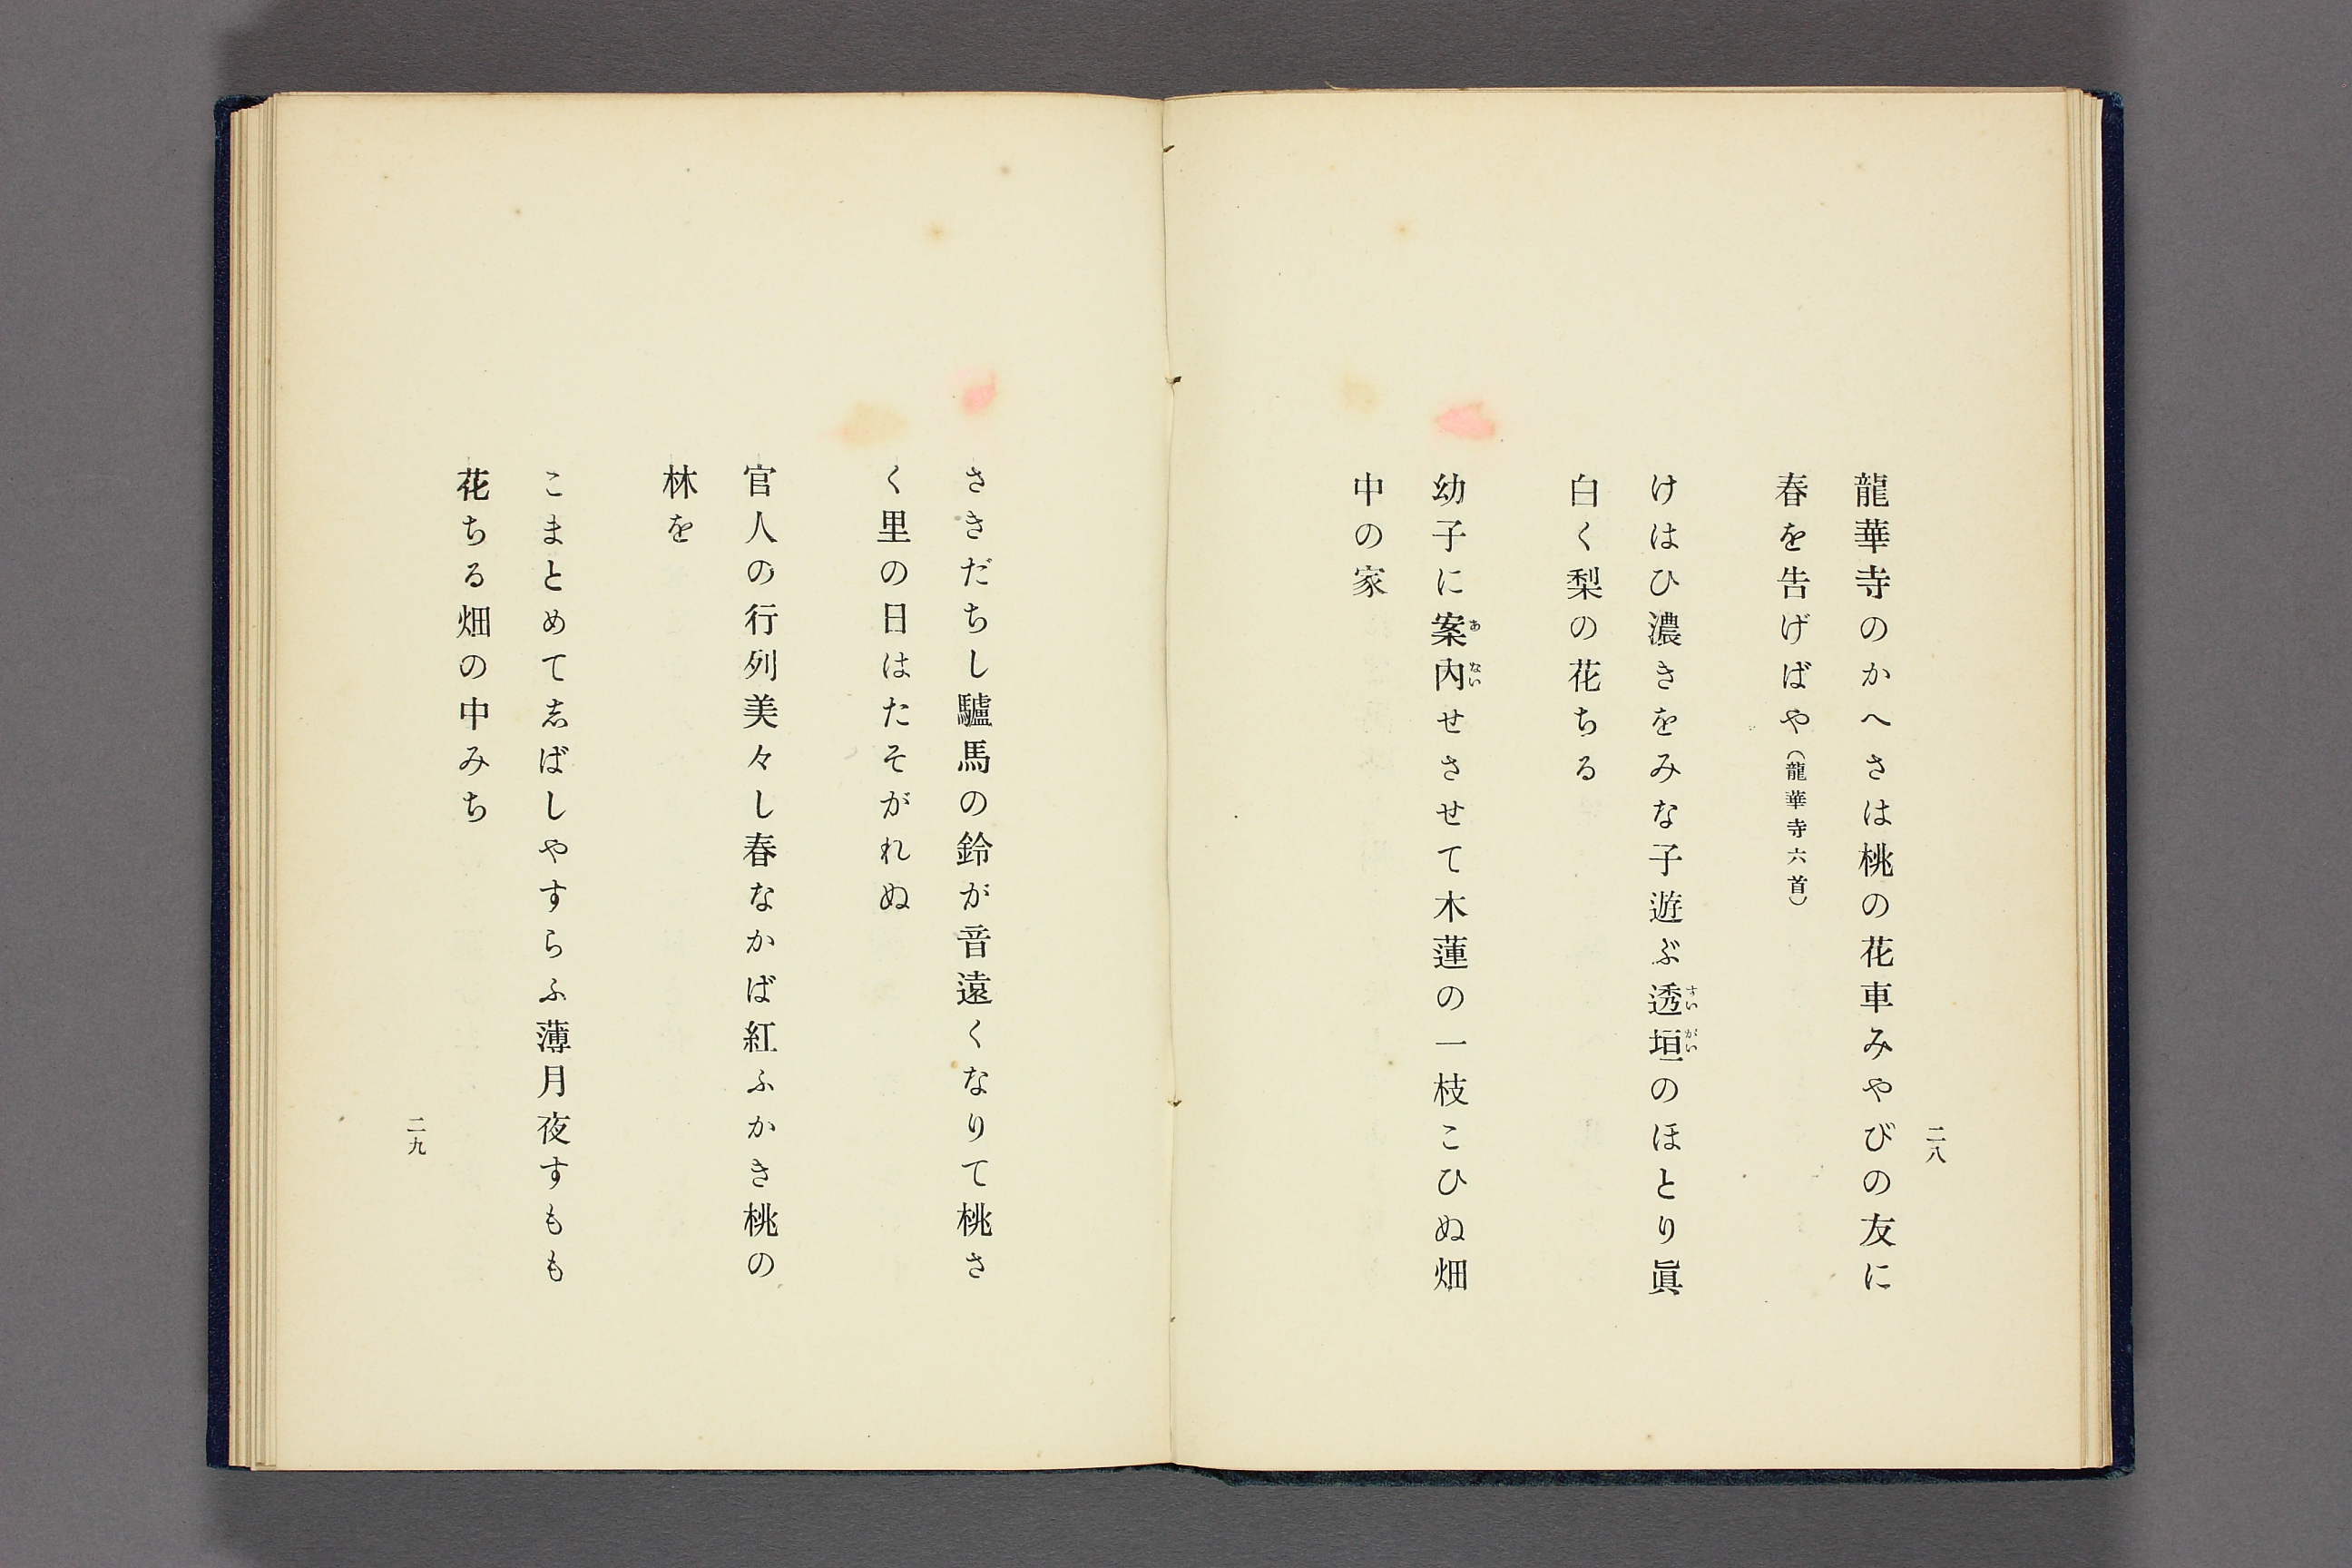 二八
龍華寺のかへさは桃の花車みやびの友に
春を告げばや（龍華寺六首）
けはひ濃きをみな子遊ぶ透垣のほとり眞
すいがい
白く梨の花ちる
幼子に案内せさせて木蓮の一枝こひぬ畑
あない
中の家
さきだちし驢馬の鈴が音遠くなりて桃さ
く里の日はたそがれぬ
官人の行列美々し春なかば紅ふかき桃の
林を
こまとめて志ばしやすらふ薄月夜すもも
花ちる畑の中みち
二九